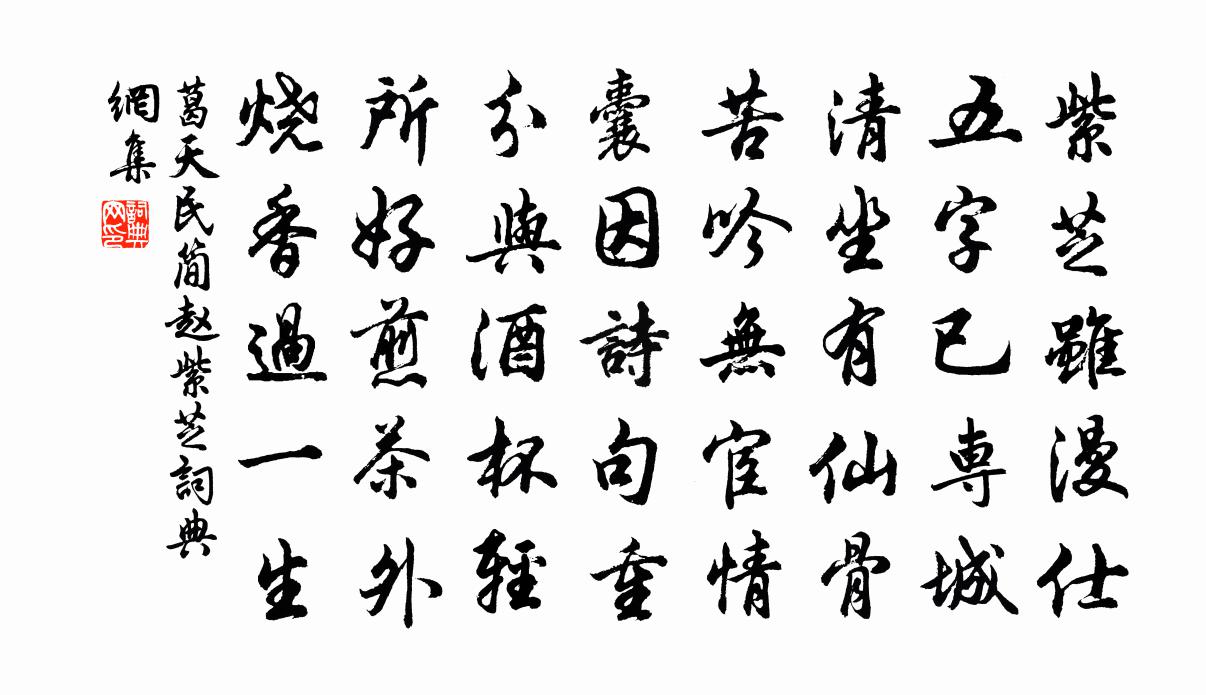 紫芝雖漫仕
五字已専城
清坐有仙骨
苦吟無宦情
囊因詩句重
分與酒杯輕
所好煎茶外
烧香過一生
葛天民简赵紫芝詞典
網集
詞典
网印